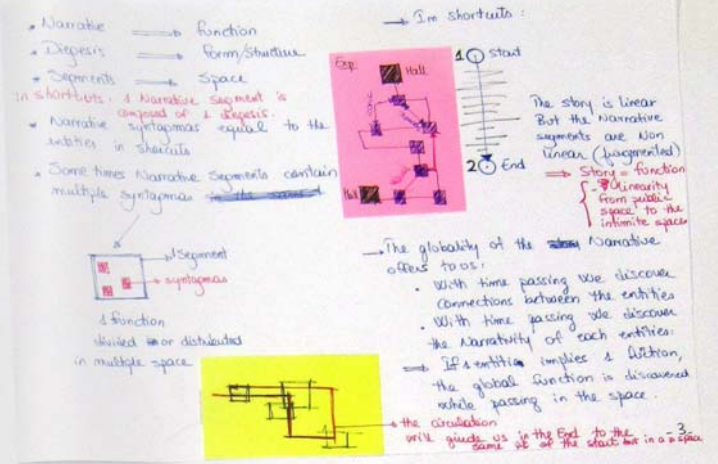 * Narrative ⟹ function
* Diegesis ⟹ Form/Structure
* Segments ⟹ Space
In shortcuts: 1 Narrative segment is
composed of 1 diegesis.
* Narrative syntagmas equal to the
entities in shortcuts
* Some times Narrative Segments contain
multiple syntagmas
1 Segment
syntagmas
1 function
divided or distributed
in multiple space
→ In shortcuts:
Hall
Hall
1 Start
2 End
The story is linear
But the Narrative
segments are Non
linear (fragmented)
⟹ Story = function
linearity
from public
space to the
intimite space
→ The globality of the Narrative
offers to us:
• With time passing we discover
connections between the entities
• With time passing we discover
the Narrativity of each entities.
⟹ If 1 entitie implies 1 function,
the global function is discovered
while passing in the space.
→ the circulation
will giude us in the End to the
same of the start but in a space
-3-